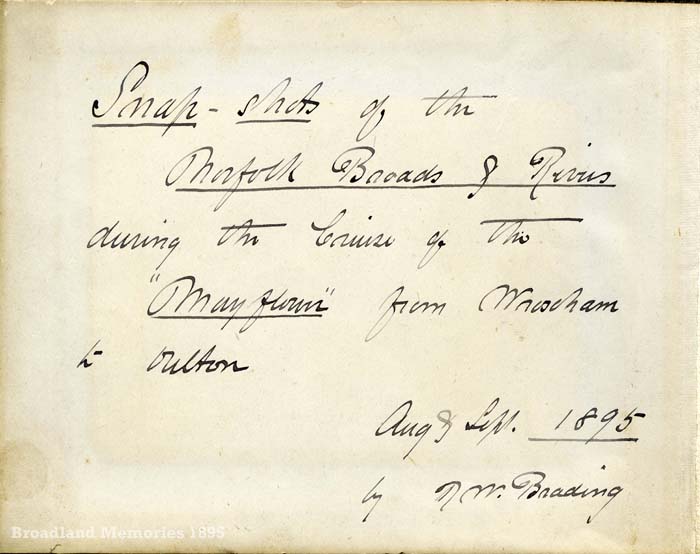 Snap-shots of the
Norfolk Broads & Rivers
during the Cruise of the
"Mayflower" from Wroxham
to Oulton
Aug & Sept. 1895
by W. Brading
Broadland Memories 1895